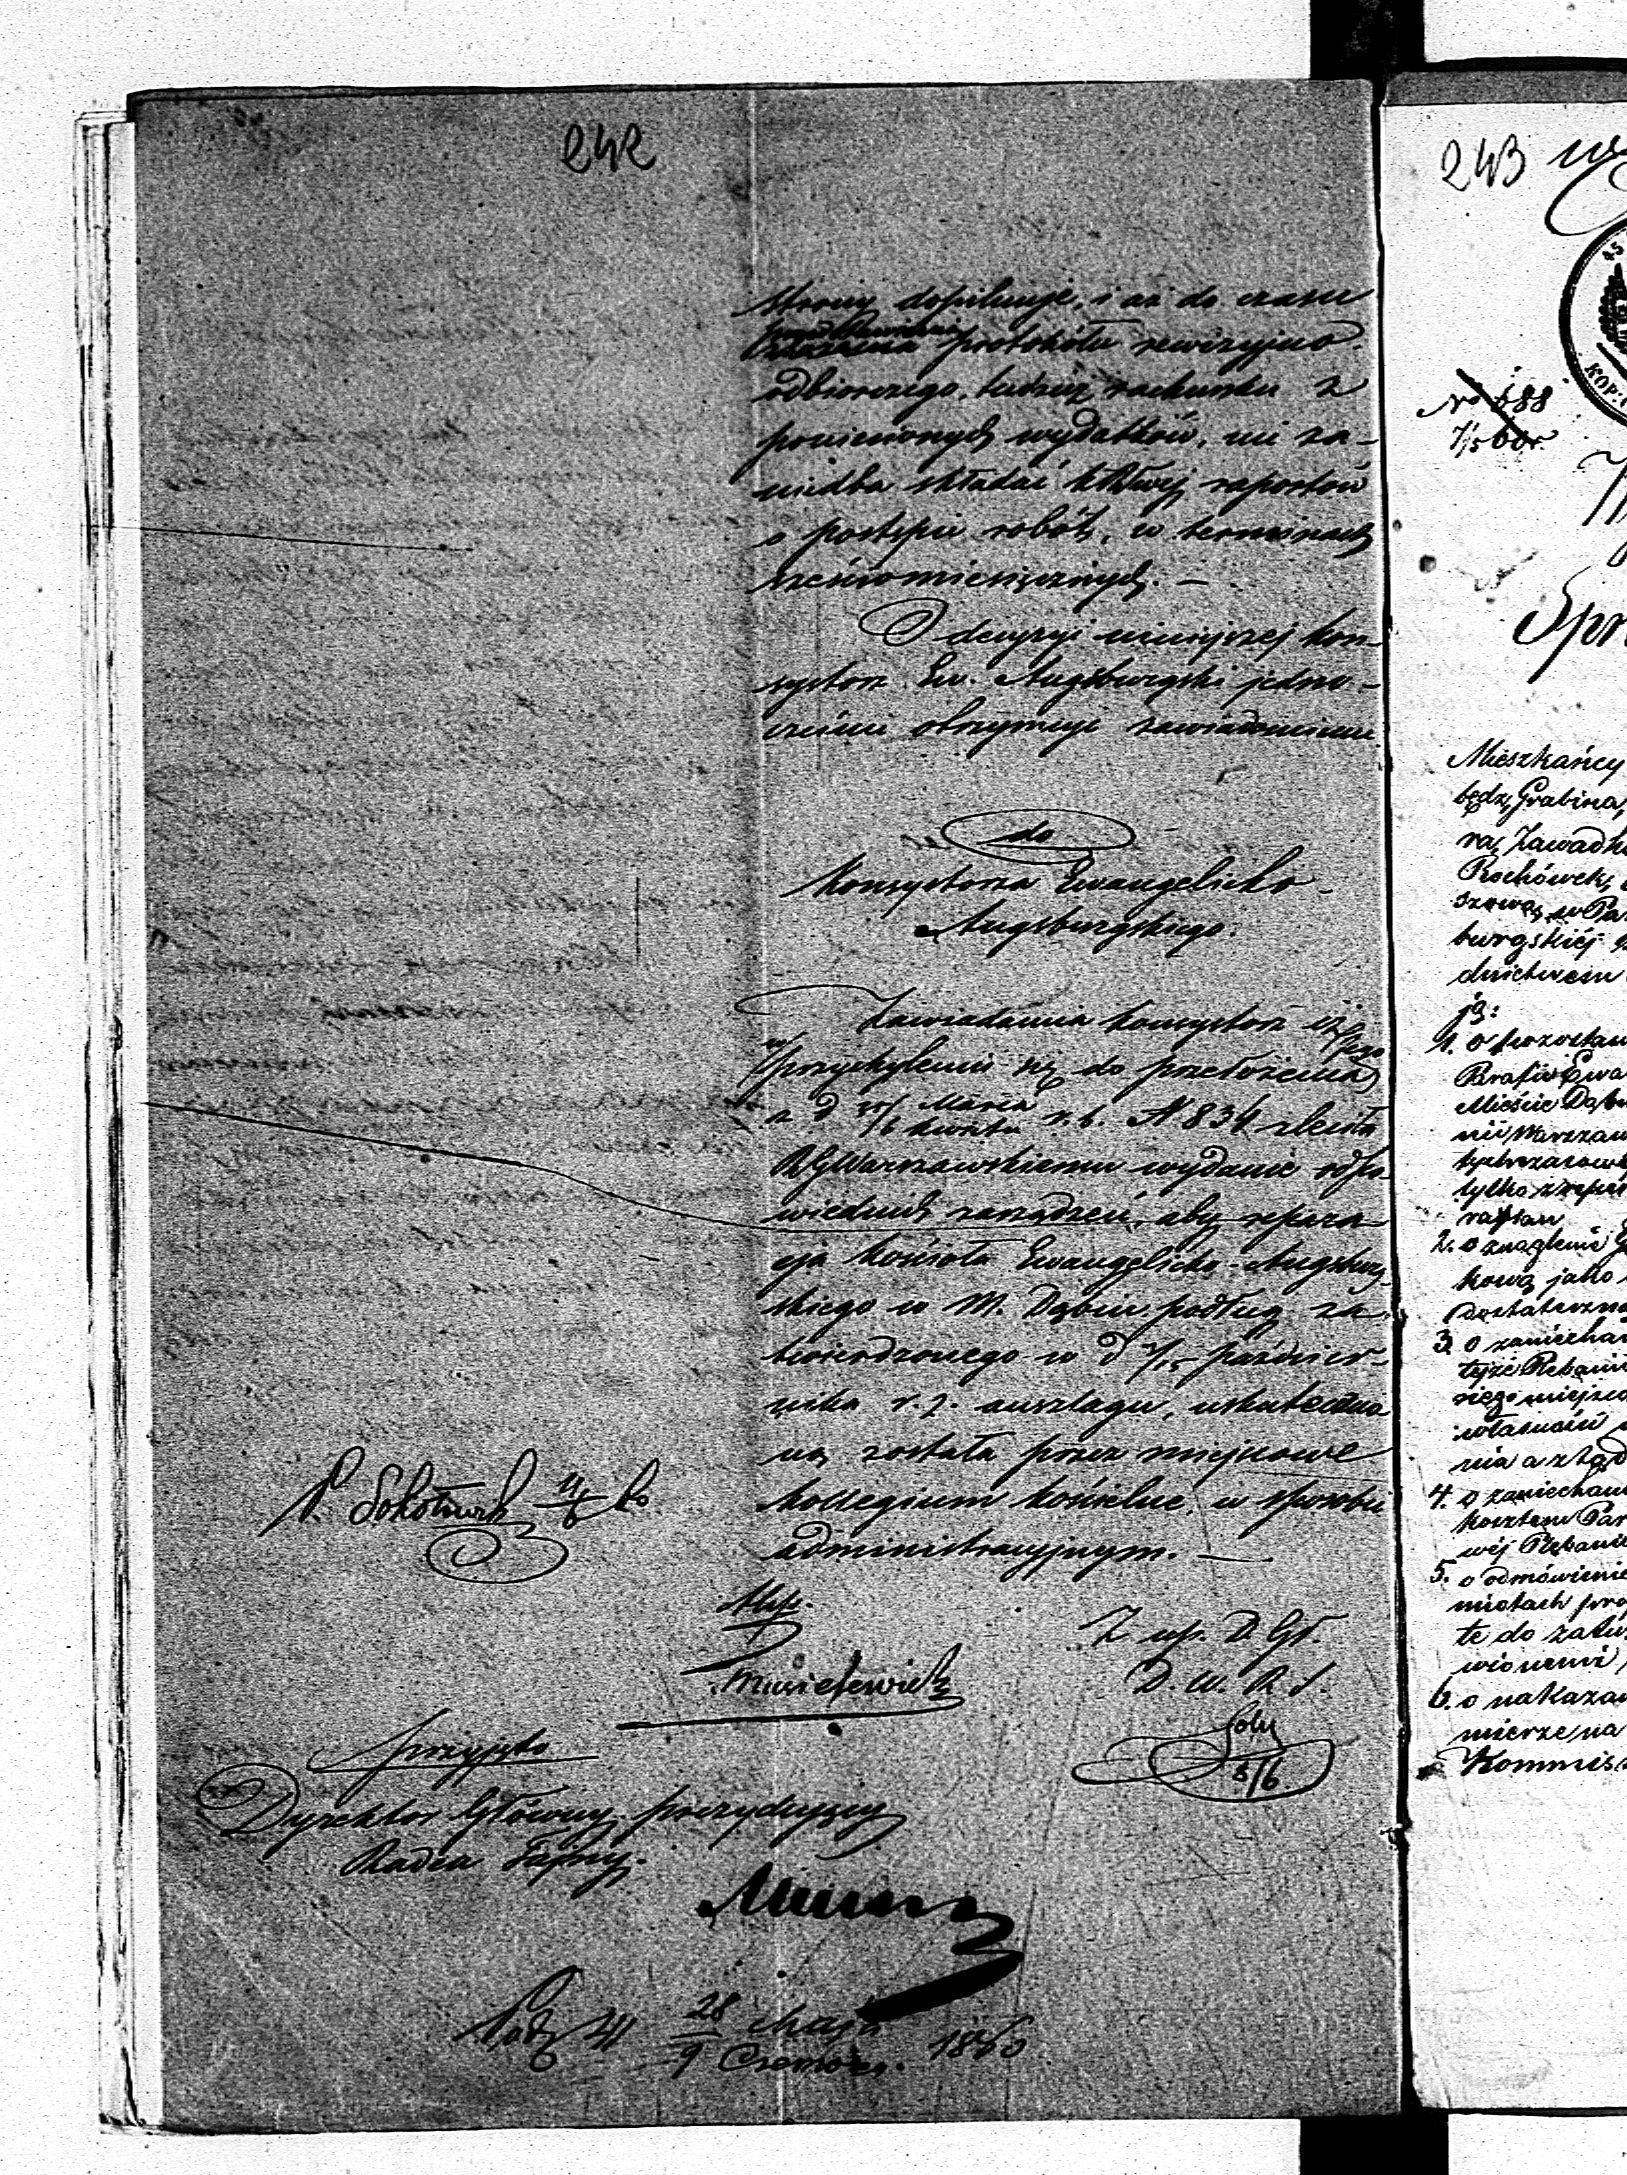 242
strony dopilnuje, i aż do czasu
protokółu rewizyjno-
odbiorczego, tudzież rachunku z
poniesionych wydatków, nie za-
niedba składać raportów
o postępie robót, w terminach
sześciomiesięcznych. —
O decyzyi niniejszej Kon-
systorz Ew. Augsburgski jedno-
cześnie otrzymuje zawiadomienie.
do
Konsystorza Ewangelicko-
Augsburgskiego.
Zawiadamia Konsystorz iż
w przychyleniu się do przełożenia
z d Marca
Kwietnia r. b. N 834 zleciła
RGWarszawskiemu wydanie odpo-
wiednich zarządzeń, aby repara-
cja Kościoła Ewangelicko-Augsburg-
skiego w M. Dąbiu podług za-
twierdzonego w d 3/15 Paździer-
nika r. z. anszlagu, uskutecznio-
ną została przez miejscowe
Kollegium Kościelne, w sposobie
administracyjnym. —
Z up. D. Gł.
D. W. R S.
8/6
przyjęto
Dyrektor Główny prezydujący
Radca Tajny.
28 Maja
9 Czerwca 1860
243
No 688
7/5 60r
Spr
Mieszkańcy
będz, Grabina,
ra, Zawadk
Rochówek,
szewa, w Pa
burgskiéj
dnictwem
ją:
1. o pozostaw
Parafii Ewa
Mieście Dąb
nii Warszaw
tymczasow
tylko
2. o znaglenie
kową jako
dostateczn
3. o zaniechan
tejże Plebanii
niego miejsc
własności
nia a z tąd
4. o zaniechan
kosztem Par
wéj Plebanii
5. o odmówienie
miotach pro
te do zatw
wionemi
6. o nakazan
mierze na
Kommis